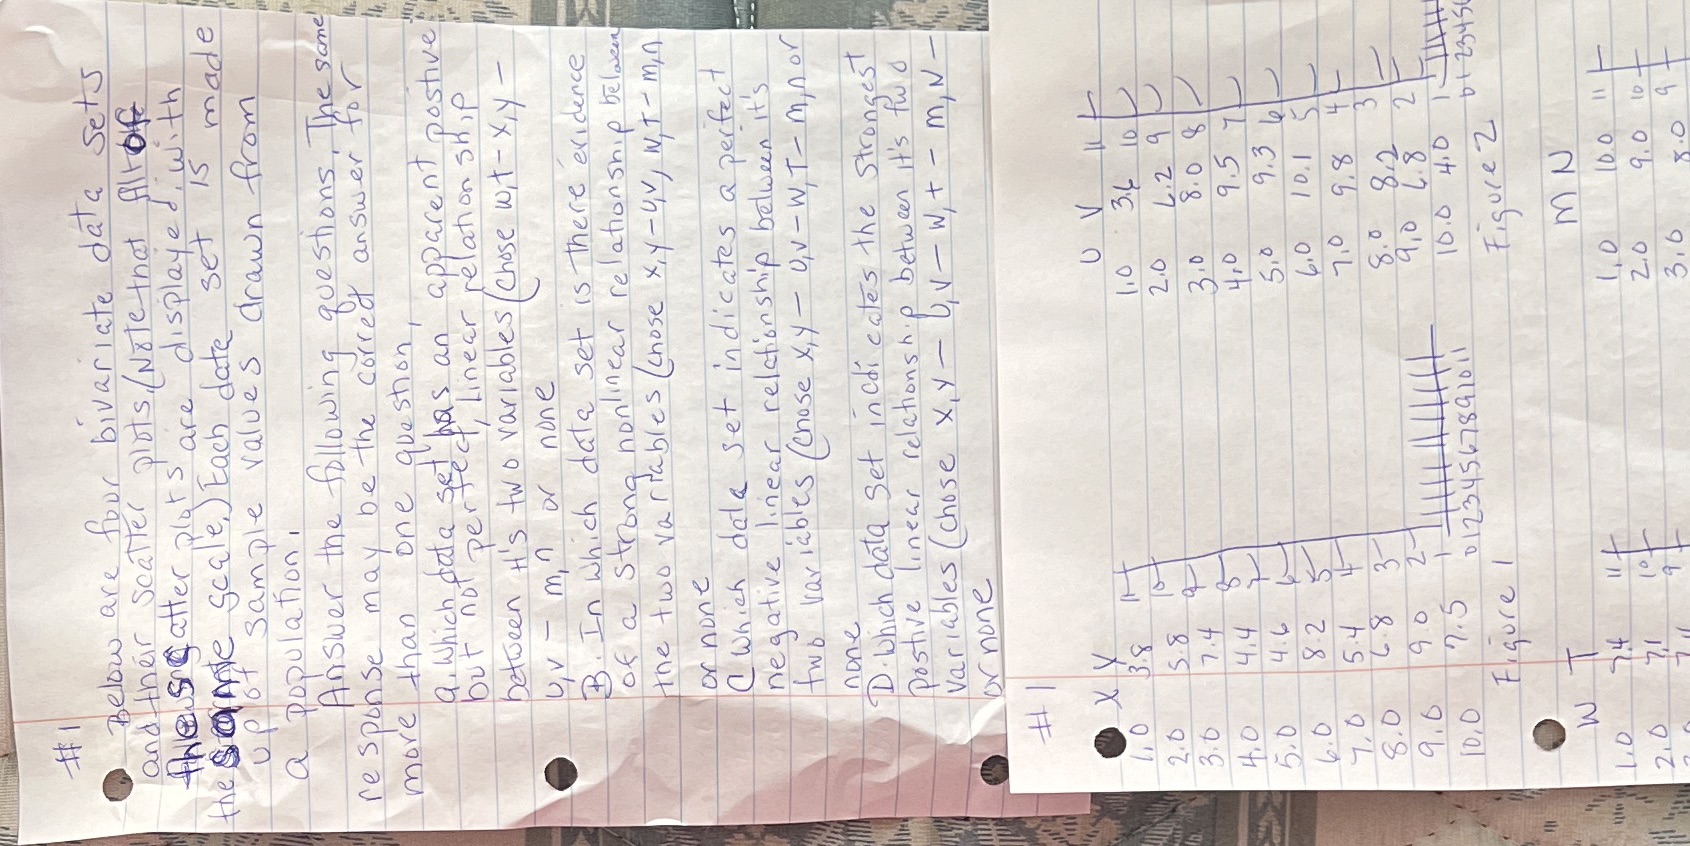 #1
Below are four bivariate data sets
and their scatter plots. (Note that all of
these scatter plots are displayed with
the same scale.) Each date set is made
up of sample values drawn from
a population.
Answer the following questions. The same
response may be the correct answer for
more than one question.
a. Which data set has an apparent postive
but not perfect, linear relationship
between it's two variables (chose w,t - x,y -
u,v - m,n or none
B. In which data set is there evidence
of a strong nonlinear relationship between
the two variables (chose x,y - u,v, w,t - m,n
or none
C Which data set indicates a perfect
negative linear relationship between it's
two variables (chose x,y - u,v - w,T - m,n or
none
D. Which data set indicates the strongest
postive linear relationship between it's two
variables (chose x,y - u,v - w,t - m,n -
or none
#1
X Y
1.0 3.8
2.0 5.8
3.0 7.4
4.0 4.4
5.0 4.6
6.0 8.2
7.0 5.4
8.0 6.8
9.0 9.0
10.0 7.5
11
10
9
8
7
6
5
4
3
2
1
0 1 2 3 4 5 6 7 8 9 10 11
Figure 1
U V
1.0 3.6
2.0 6.2
3.0 8.0
4.0 9.5
5.0 9.3
6.0 10.1
7.0 9.8
8.0 8.2
9.0 6.8
10.0 4.0
11
10
9
8
7
6
5
4
3
2
1
0 1 2 3 4 5
Figure 2
W T
1.0 7.4
2.0 7.1
11
10
9
M N
1.0 10.0
2.0 9.0
3.0 8.0
11
10
9